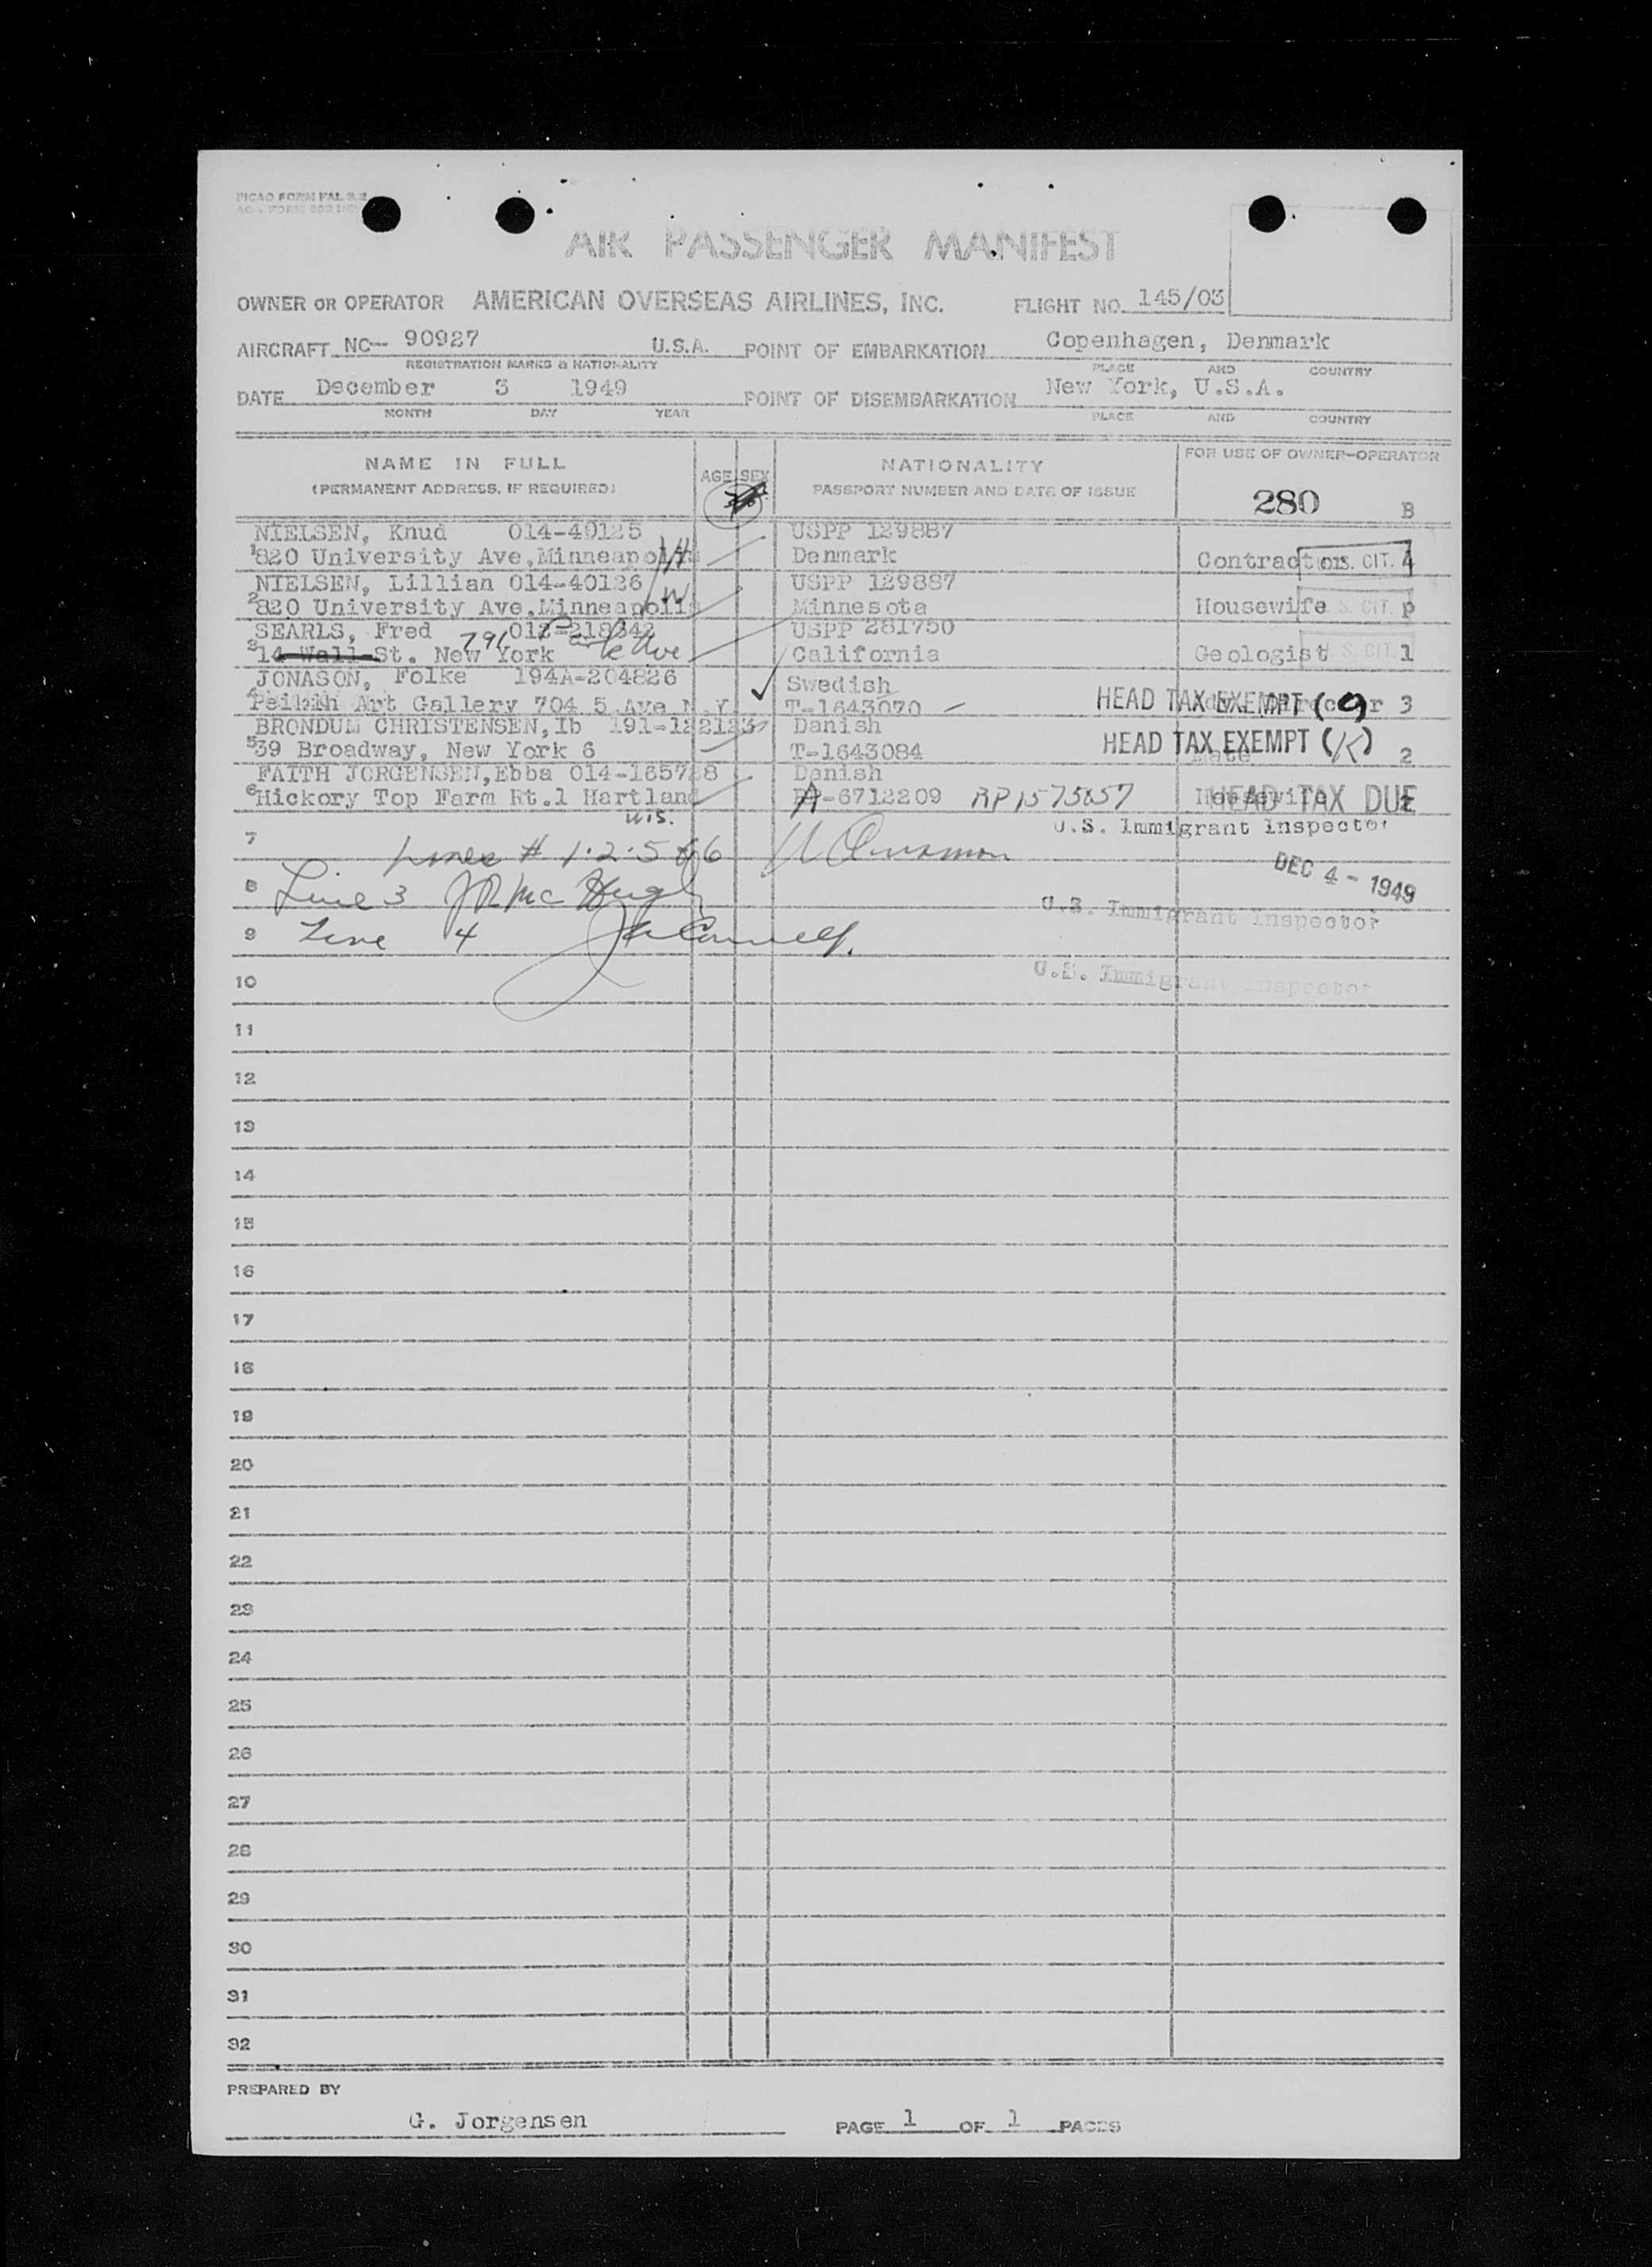 PICAO FORM FAL 2.2
AIR PASSENGER MANIFEST
OWNER OR OPERATOR AMERICAN OVERSEAS AIRLINES, INC. FLIGHT NO. 145/03
AIRCRAFT NC- 90927 U.S.A. POINT OF EMBARKATION Copenhagen, Denmark
REGISTRATION MARKS & NATIONALITY PLACE AND COUNTRY
DATE December 3 1949 POINT OF DISEMBARKATION New York, U.S.A.
MONTH DAY YEAR PLACE AND COUNTRY
NAME IN FULL AGE SEX NATIONALITY FOR USE OF OWNER-OPERATOR
(PERMANENT ADDRESS, IF REQUIRED) PASSPORT NUMBER AND DATE OF ISSUE 280 B
NIELSEN, Knud 014-40125 USPP 129887
1 820 University Ave.Minneapolis Denmark Contractor U.S. CIT. 4
NIELSEN, Lillian 014-40126 W USPP 129887
2 820 University Ave.Minneapolis Minnesota Housewife U.S. CIT. p
SEARLS, Fred USPP 281750
3 14 Wall St. New York 791 Park Ave California Geologist U.S. CIT. 1
JONASON, Folke 194A-204826 Swedish
4 Art Gallery 704 5 Ave N.Y. T-1643070 HEAD TAX EXEMPT (9) 3
BRONDUM CHRISTENSEN, Ib 191-122123 Danish
5 39 Broadway, New York 6 T-1643084 HEAD TAX EXEMPT (K) Mate 2
FAITH JORGENSEN, Ebba Danish
6 Hickory Top Farm Rt.1 Hartland A-6712209 RP1575857 Housewife HEAD TAX DUE
Wis. U.S. Immigrant Inspector
7 Lines # 1.2.5 & 6
DEC 4 - 1949
8 Line 3 JR McHugh U.S. Immigrant Inspector
9 Line 4
10 U.S. Immigrant Inspector
11
12
13
14
15
16
17
18
19
20
21
22
23
24
25
26
27
28
29
30
31
32
PREPARED BY
G. Jorgensen PAGE 1 OF 1 PAGES